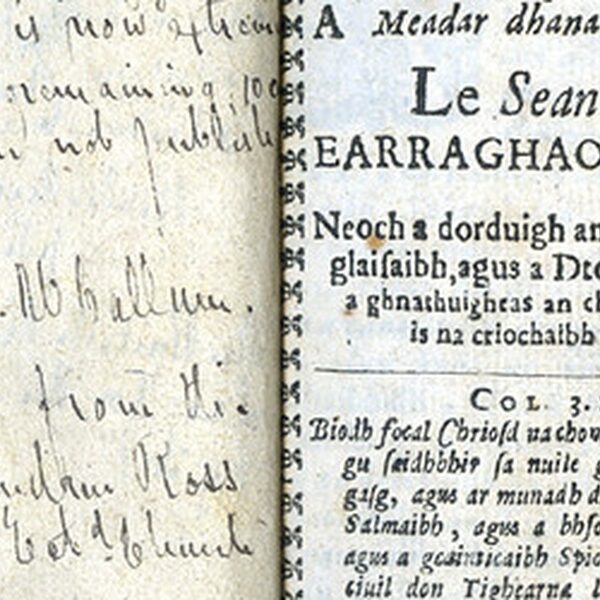 is now
remaining 100
not publish
McCallum.
from the
Ross
Church
A Meadar dhana
Le Sean
EARRAGHAO
Neoch a dorduigh an
glaiſaibh, agus a Dte
a ghnathuigheas an ch
is na criochaibh
COL. 3.
Biodh focal Chrioſd na chow
gu ſaidhbhir ſa nuile g
gaſg, agus ar munadh d
Salmaibh, agus a bhfo
agus a gcainticaibh Spio
ciuil don Tighearna l